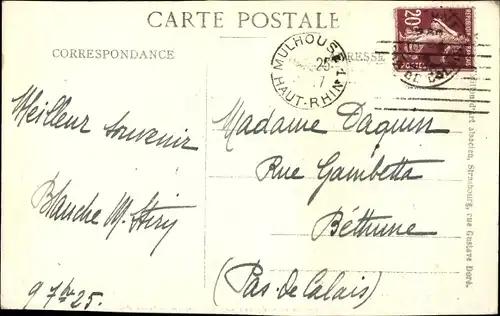 CARTE POSTALE
CORRESPONDANCE
ADRESSE
MULHOUSE
25
HAUT-RHIN
20c
Meilleur souvenir
Blanche
9 7bre 25.
Madame Daquin
Rue Gambetta
Béthune
(Pas-de-Calais)
d'art alsacien, Strasbourg, rue Gustave Doré.